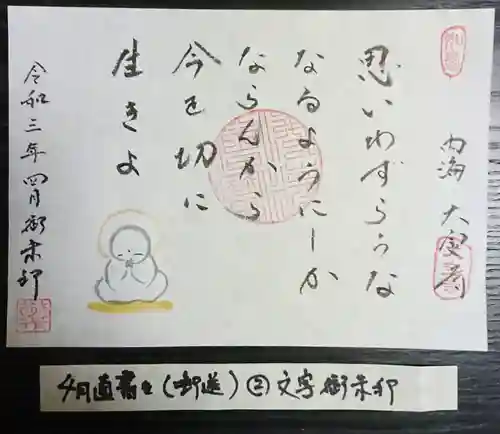 内海 大寶寺
思いわずらうな
なるようにしか
ならんから
今を切に
生きよ
令和三年四月御朱印
4月直書き(郵送)②文字御朱印